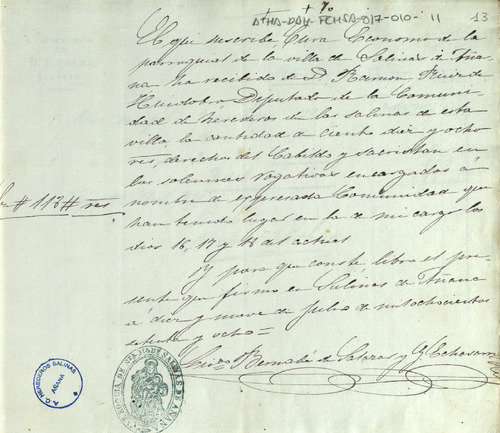 + 70
ATHA-DAH-FCHSA-017-010-11
13
El que suscribe Cura Economo de la
parroquial de la villa de Salinas de Aña
na ha recibido de D. Ramon Ruiz de
Huidobro Diputado de la Comuni
dad de herederos de las salinas de esta
villa, la cantidad de ciento diez y ocho
rs, derechos del Cabildo y sacristan en
las solemnes rogativas encargadas á
nombre de expresada Comunidad que
han tenido lugar en la de mi cargo los
dias 16, 17 y 18 del actual
Son # 118 # rs
Y para que conste libro el pre
sente que firmo en Salinas de Añana
á diez y nueve de Julio de mil ochocientos
y ocho =
Bernabé de Salazar y Echavarri
A.C. HEREDEROS SALINAS
AÑANA
DE SALINAS DE AÑANA